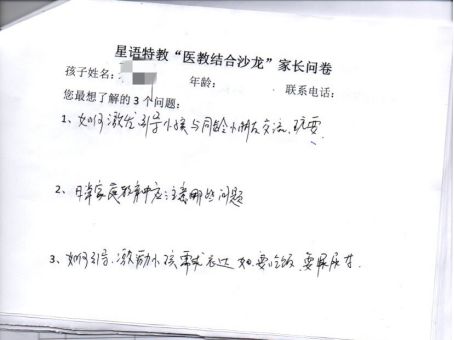 星语特教“医教结合沙龙”家长问卷
孩子姓名: 年龄: 联系电话:
您最想了解的 3 个问题:
1、如何激发引导小孩与同龄小朋友交流,玩耍
2、日常家庭教育中应注意哪些问题
3、如何引导、激励小孩需求表达 如:要吃饭,要屙尿等.